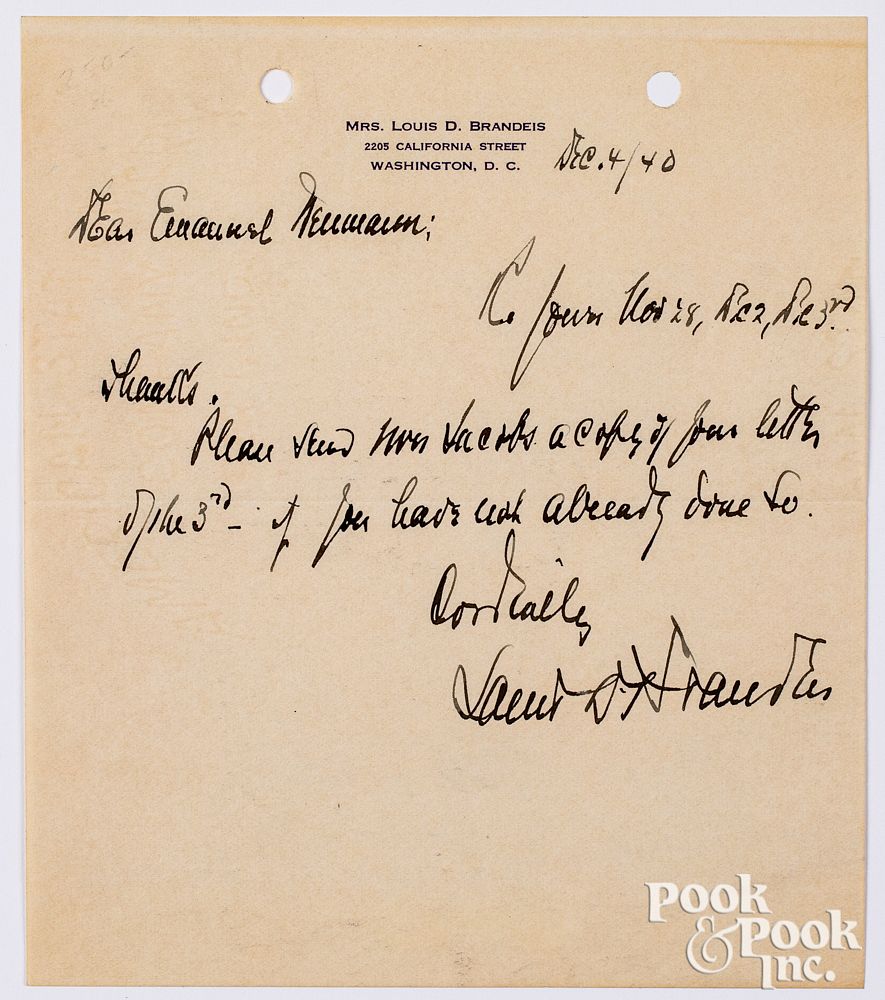 MRS. LOUIS D. BRANDEIS
2205 CALIFORNIA STREET
WASHINGTON, D. C.
Dec. 4/40
Dear Emanuel Neumann:
Re yours Nov 28, Dec 2, Dec 3rd.
Thanks.
Please send Jacobs a copy of your letter
of the 3rd – if you have not already done so.
Cordially
Louis D. Brandeis
POOK
& POOK
INC.